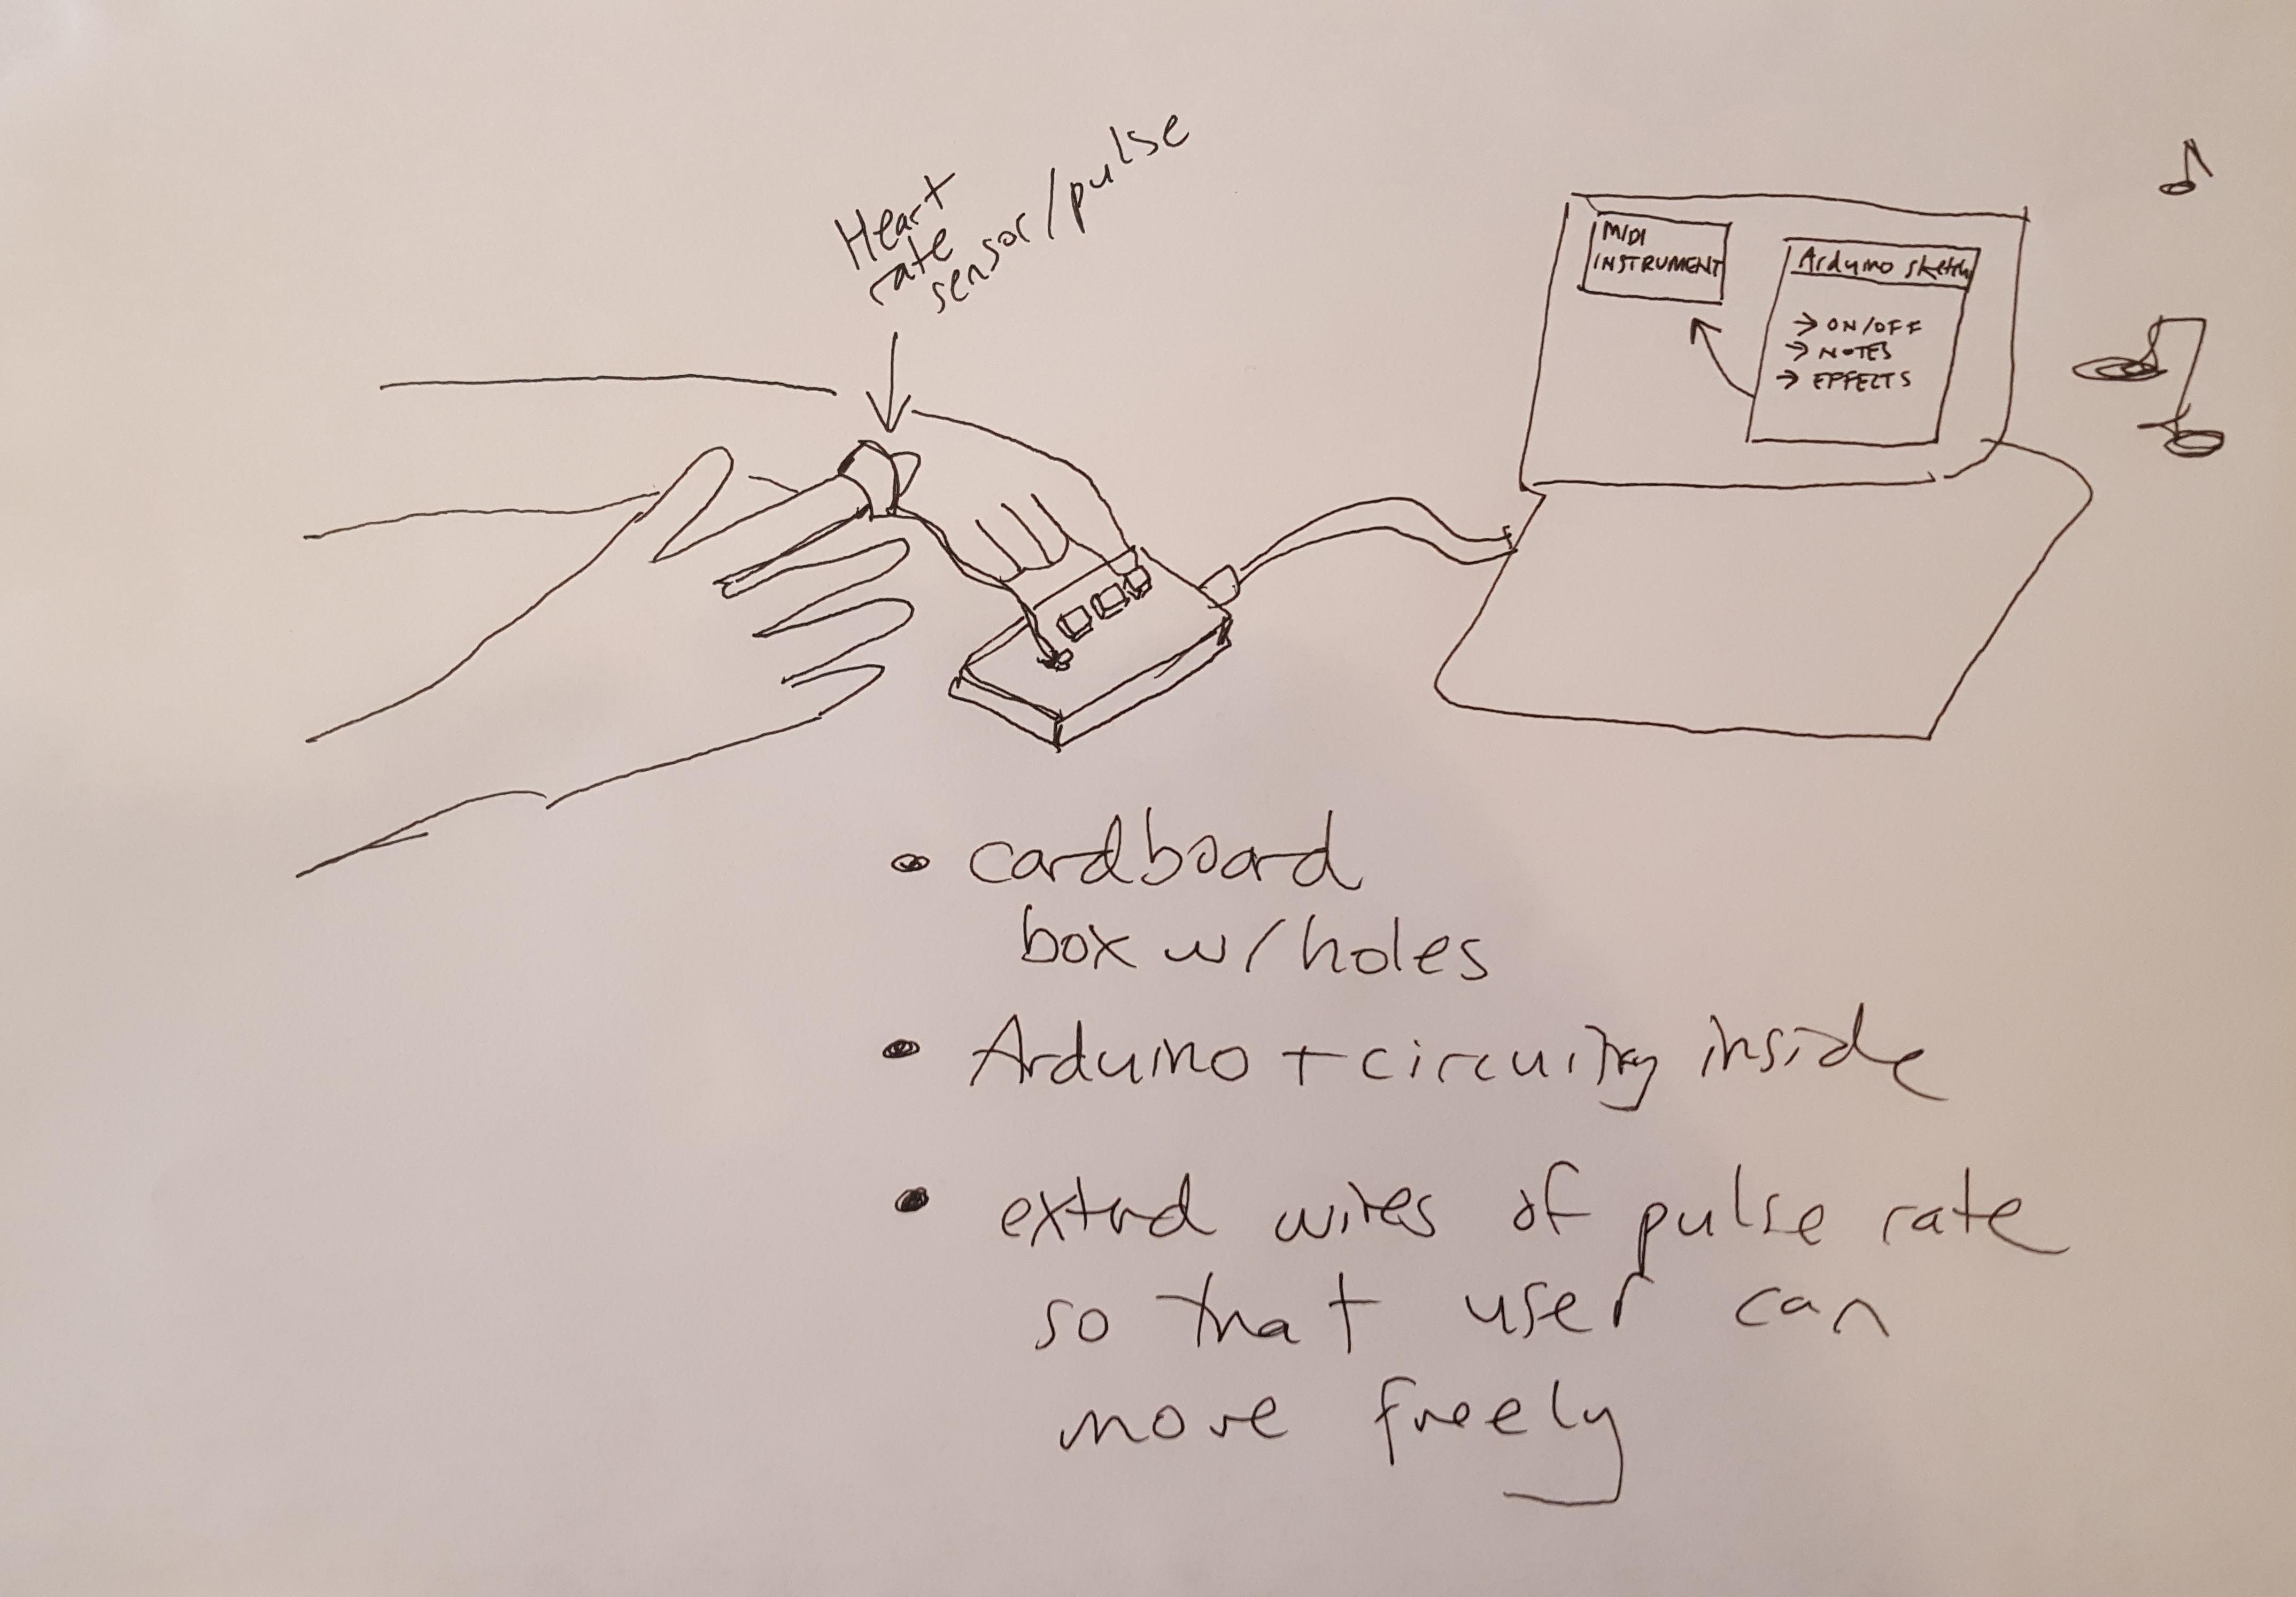 Heart
rate
sensor/pulse
MIDI
INSTRUMENT
Arduino sketch
→ ON/OFF
→ NOTES
→ EFFECTS
• cardboard
box w/holes
• Arduino + circuitry inside
• extend wires of pulse rate
so that user can
move freely